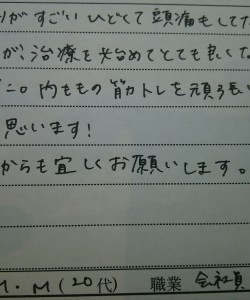 がすごいひどくて頭痛もして
が、治療を始めてとても良くな
内ももの筋トレを頑張
思います!
からも宜しくお願いします。
M・M(20代) 職業 会社員